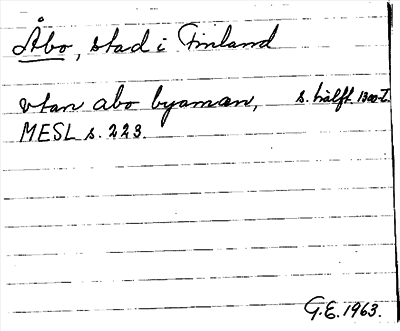 Åbo, stad i Finland
vtan abo byaman, s. hälft. 1300-t.
MESL s. 223.
G.E. 1963.